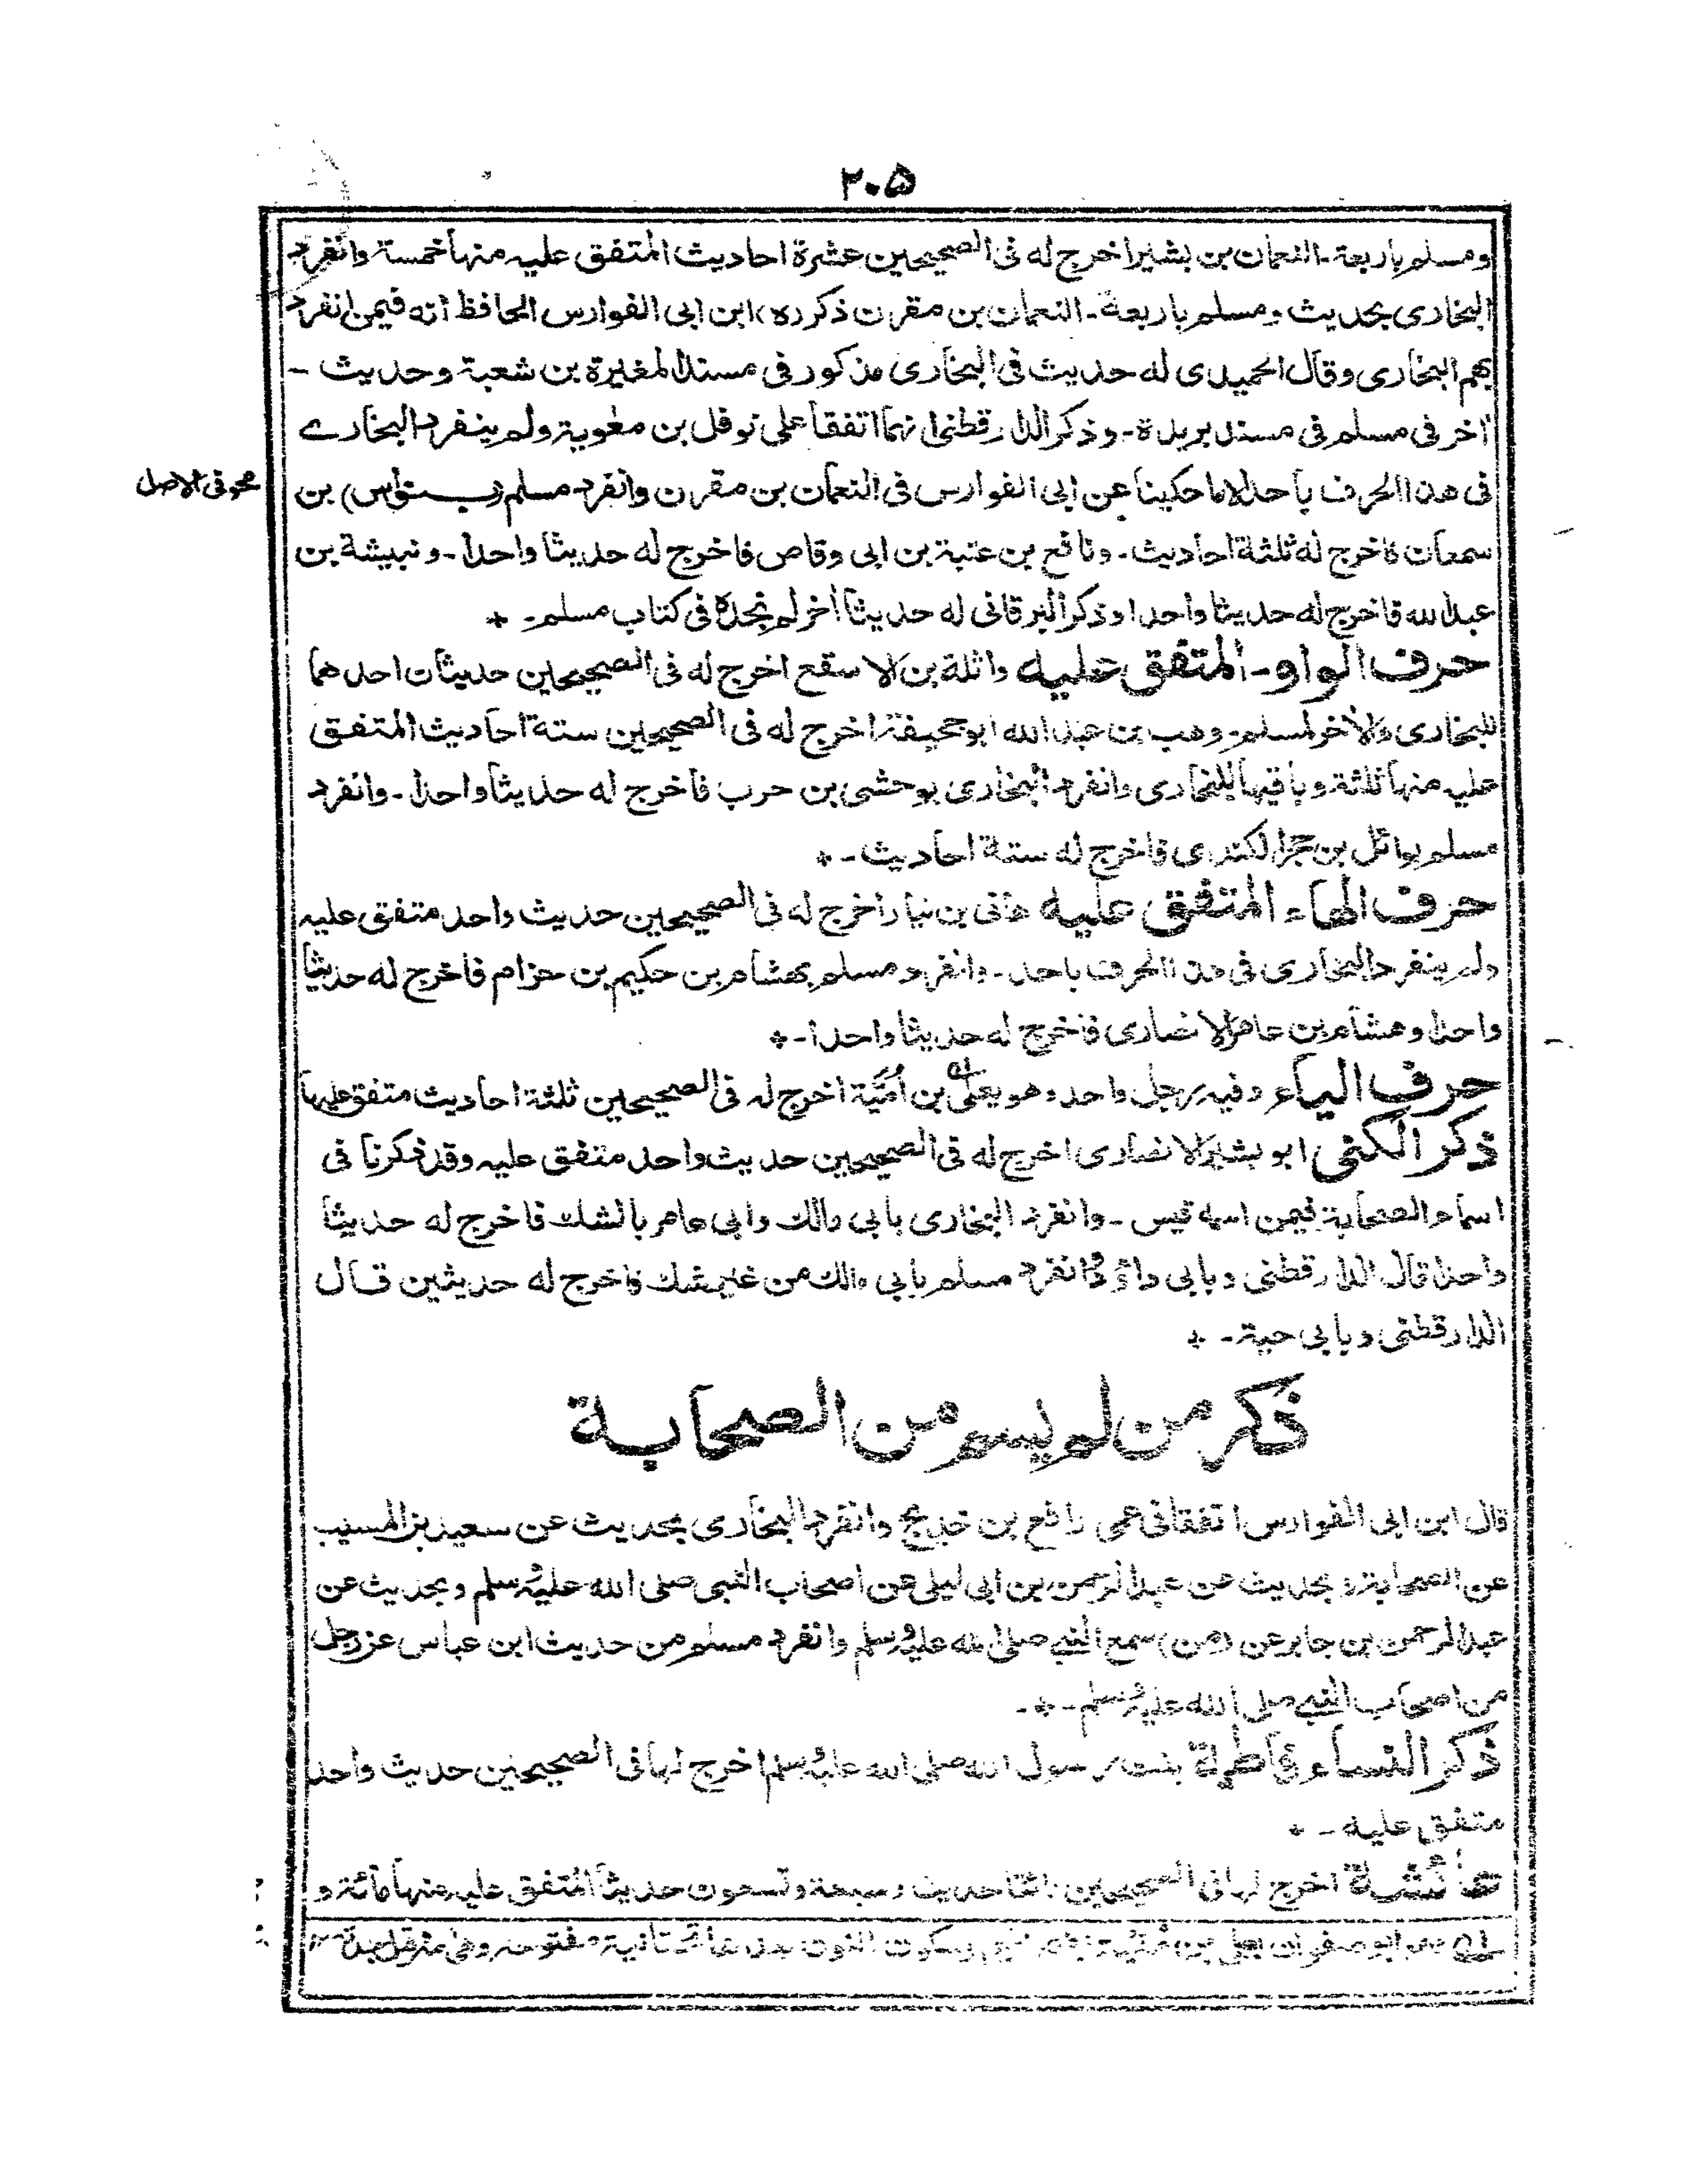 ٢٠٥
ومسلم باربعة ـ النعمان بن بشير اخرج له فى الصحيحين عشرة احاديث المتفق عليه منها خمسة وانفرد
البخارى بحديث ومسلم باربعة ـ النعمان بن مقرن ذكره ابن ابى الفوارس الحافظ انه فيمن انفرد
بهم البخارى وقال الحميدى له حديث فى البخارى مذكور فى مسند المغيرة بن شعبة وحديث ـ
آخر فى مسلم فى مسند بريدة ـ وذكر الدارقطنى انهما اتفقا على نوفل بن معٰوية ولم ينفرد البخارے
فى هذا الحرف باحد الا ما حكينا عن ابى الفوارس فى النعمان بن مقرن وانفرد مسلم (بـــنواس) بن
محو فى الاصل
سمعان فاخرج له ثلثة احاديث ـ ونافع بن عتبة بن ابى وقاص فاخرج له حديثا واحدا ـ ونبيشة بن
عبد الله فاخرج له حديثا واحدا وذكر البرقانى له حديثا آخر لم نجده فى كتاب مسلم ـ *
حرف الواو ـ المتفق عليه واثلة بن الاسقع اخرج له فى الصحيحين حديثان احدهما
للبخارى والآخر لمسلم ـ وهب بن عبد الله ابو جحيفة اخرج له فى الصحيحين ستة احاديث المتفق
عليه منها ثلثة وباقيها للبخارى وانفرد البخارى بوحشى بن حرب فاخرج له حديثا واحدا ـ وانفرد
مسلم بوائل بن حجر الكندى فاخرج له ستة احاديث ـ *
حرف الهاء المتفق عليه هانى بن نيار اخرج له فى الصحيحين حديث واحد متفق عليه
ولم ينفرد البخارى فى هذا الحرف باحد ـ وانفرد مسلم بهشام بن حكيم بن حزام فاخرج له حديثا
واحدا وهشام بن عامر الانصارى فاخرج له حديثا واحدا ـ *
حرف الياء وفيه رجل واحد وهو يعلى بن اُمَيَّة اخرج له فى الصحيحين ثلثة احاديث متفق عليها
ذكر الكنى ابو بشير الانصارى اخرج له فى الصحيحين حديث واحد متفق عليه وقد ذكرنا فى
اسماء الصحابة فيمن اسمه قيس ـ وانفرد البخارى بابى مالك وابى عامر بالشك فاخرج له حديثا
واحدا قال الدارقطنى وبابى داؤد وانفرد مسلم بابى مالك من غير شك فاخرج له حديثين قال
الدارقطنى وبابى حية ـ *
ذكر من لم يسم من الصحابة
قال ابن ابى الفوارس اتفقا فى عمى رافع بن خديج وانفرد البخارى بحديث عن سعيد بن المسيب
عن الصحابة وبحديث عن عبد الرحمن بن ابى ليلى عن اصحاب النبى صلى الله عليه وسلم وبحديث عن
عبد الرحمن بن جابر عن (من) سمع النبى صلى الله عليه وسلم وانفرد مسلم من حديث ابن عباس عن رجل
من اصحاب النبى صلى الله عليه وسلم ـ * ـ
ذكر النساء فاطمة بنت رسول الله صلى الله عليه وسلم اخرج لها فى الصحيحين حديث واحد
متفق عليه ـ *
عائشة اخرج لها فى الصحيحين مائتا حديث وسبعة وتسعون حديثا المتفق عليه منها مائة و
هو ابو صفوان يعلى بن مُنْية بسكون النون مفتوحة وهى